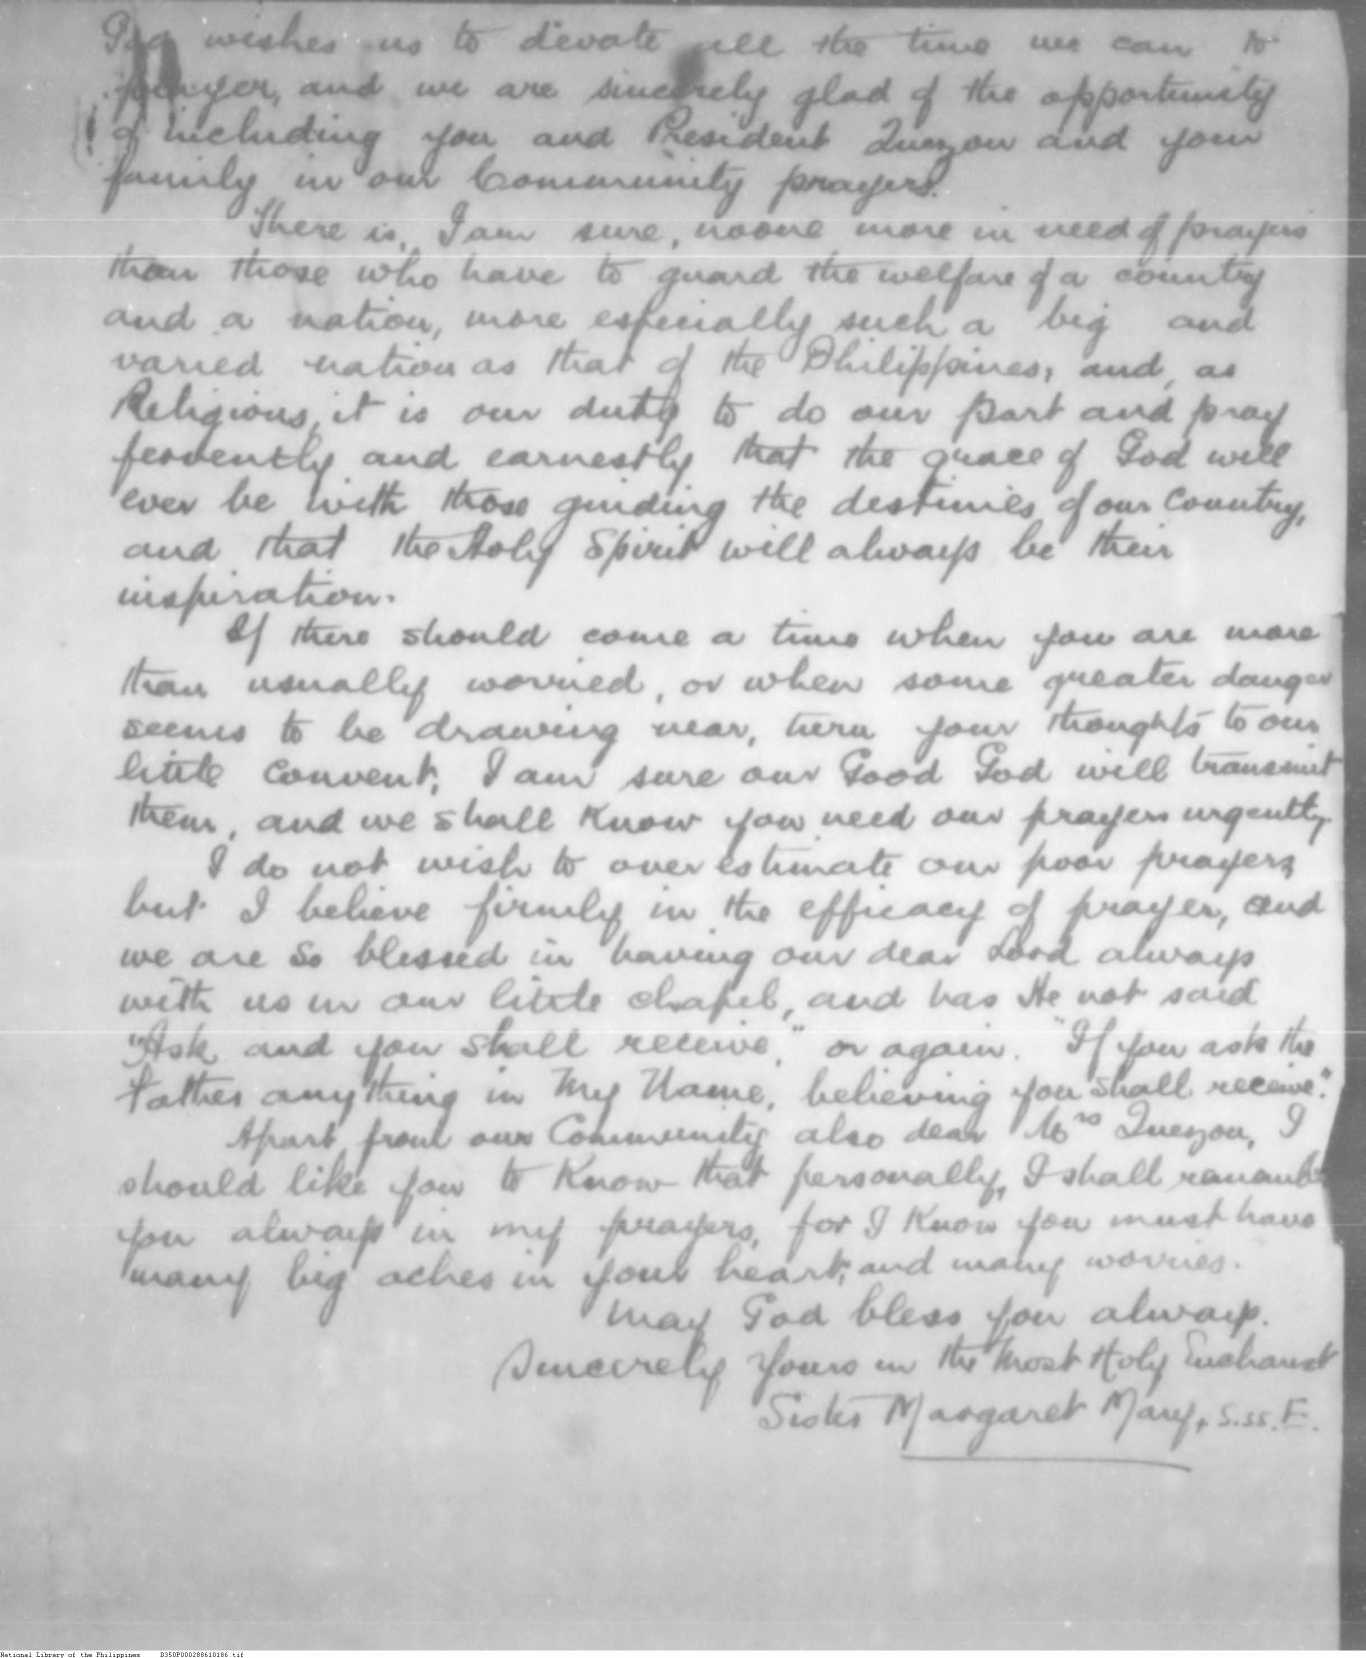 God wishes us to devote all the time we can to
prayer, and we are sincerely glad of the opportunity
of including you and President Quezon and your
family in our Community prayers.
There is, I am sure, noone more in need of prayers
than those who have to guard the welfare of a country
and a nation, more especially such a big and
varied nation as that of the Philippines, and, as
Religious, it is our duty to do our part and pray
fervently and earnestly that the grace of God will
ever be with those guiding the destinies of our Country,
and that the Holy Spirit will always be their
inspiration.
If there should come a time when you are more
than usually worried, or when some greater danger
seems to be drawing near, turn your thoughts to our
little convent, I am sure our Good God will transmit
them, and we shall know you need our prayers urgently.
I do not wish to over estimate our poor prayers,
but I believe firmly in the efficacy of prayer, and
we are so blessed in having our dear Lord always
with us in our little chapel, and has He not said
"Ask and you shall receive," or again. "If you ask the
Father anything in My Name, believing you shall receive."
Apart from our Community also dear Mrs Quezon, I
should like you to know that personally, I shall remember
you always in my prayers, for I know you must have
many big aches in your heart, and many worries.
May God bless you always.
Sincerely yours in the Most Holy Eucharist
Sister Margaret Mary, S.SS.E.
National Library of the Philippines D350P000288610186.tif